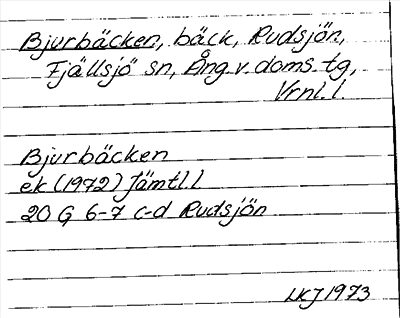 Bjurbäcken, bäck, Rudsjön,
Fjällsjö sn, Ång. v. doms. tg,
Vrnl. l.
Bjurbäcken
ek (1972) Jämtl. l
20 G 6-7 c-d Rudsjön
LKJ 1973